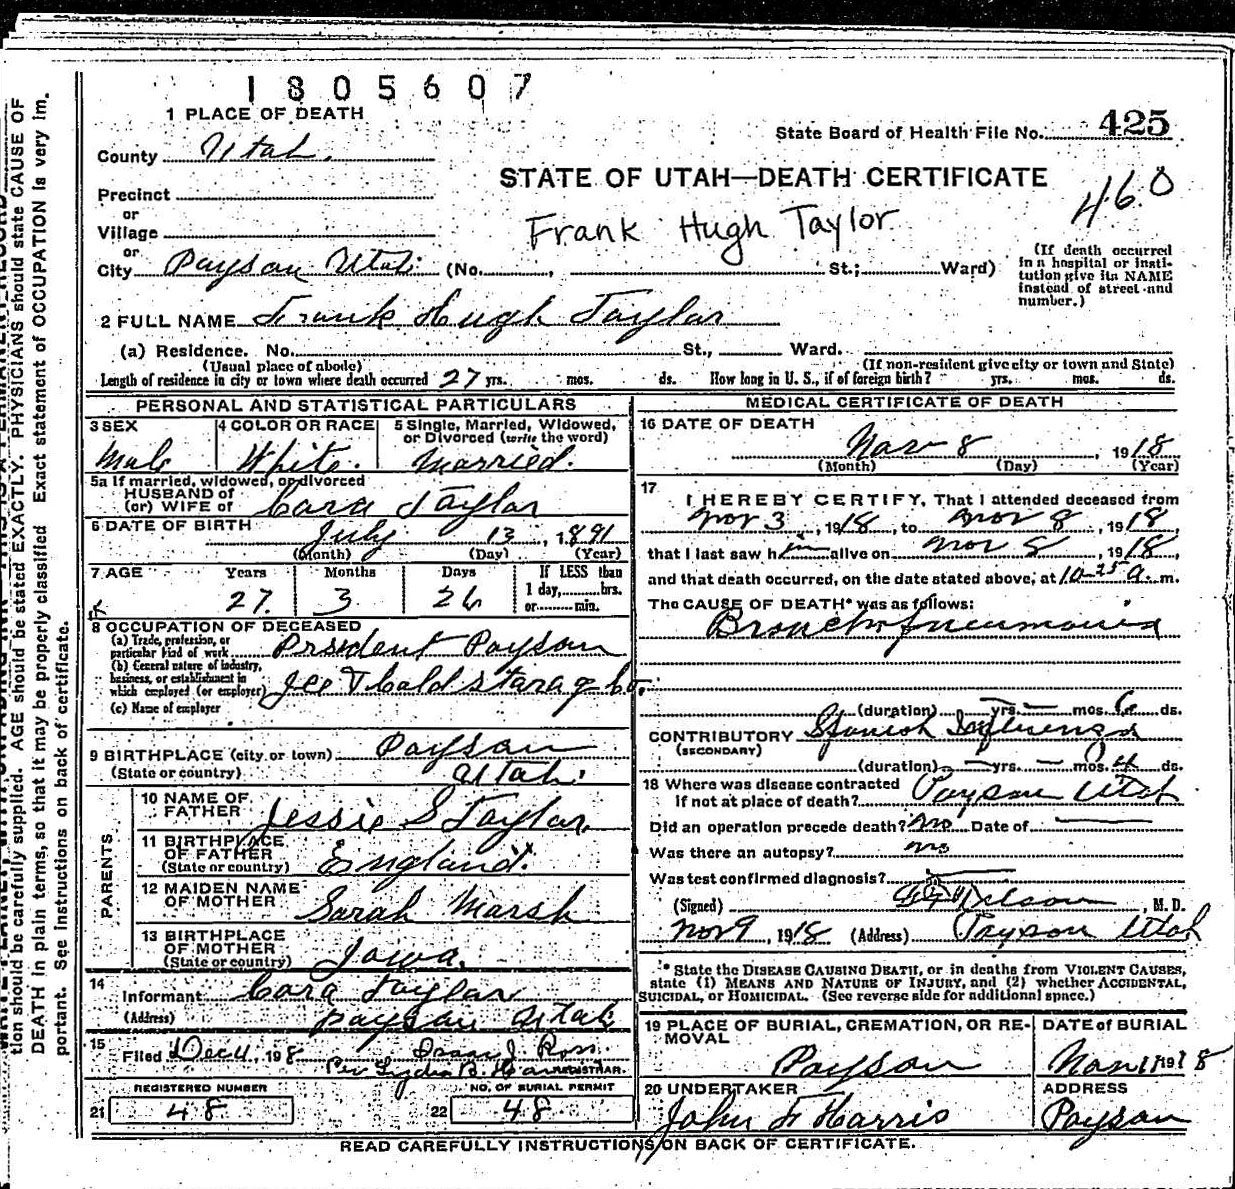 1805607
1 PLACE OF DEATH
State Board of Health File No. 425
County Utah.
STATE OF UTAH—DEATH CERTIFICATE
460
Precinct
or
Village
Frank Hugh Taylor
or
City Payson Utah (No. , St.; Ward)
(If death occurred
in a hospital or insti-
tution give its NAME
instead of street and
number.)
2 FULL NAME Frank Hugh Taylor
(a) Residence. No. St., Ward.
(Usual place of abode) (If non-resident give city or town and State)
Length of residence in city or town where death occurred 27 yrs. mos. ds. How long in U. S., if of foreign birth? yrs. mos. ds.
PERSONAL AND STATISTICAL PARTICULARS
3 SEX
Male
4 COLOR OR RACE
White.
5 Single, Married, Widowed,
or Divorced (write the word)
Married.
5a If married, widowed, or divorced
HUSBAND of
(or) WIFE of Cora Taylor
6 DATE OF BIRTH
July 13, 1891
(Month) (Day) (Year)
7 AGE Years Months Days
27 3 26
If LESS than
1 day, hrs.
or min.
8 OCCUPATION OF DECEASED
(a) Trade, profession, or
particular kind of work Prsident Payson
(b) General nature of industry,
business, or establishment in
which employed (or employer) Ice & Cold storag Co.
(c) Name of employer
9 BIRTHPLACE (city or town) Payson
(State or country) Utah.
PARENTS
10 NAME OF
FATHER Jessie S Taylor
11 BIRTHPLACE
OF FATHER
(State or country) England.
12 MAIDEN NAME
OF MOTHER Sarah Marsh
13 BIRTHPLACE
OF MOTHER
(State or country) Iowa.
14
Informant Cora Taylor
(Address) Payson Utah
15
Filed Dec 4, 1918 J. Ross
Per Lydia B. REGISTRAR.
REGISTERED NUMBER
21 48
NO. OF BURIAL PERMIT
22 48
MEDICAL CERTIFICATE OF DEATH
16 DATE OF DEATH
Nov 8, 1918
(Month) (Day) (Year)
17
I HEREBY CERTIFY, That I attended deceased from
Nov 3, 1918, to Nov 8, 1918,
that I last saw him alive on Nov 8, 1918,
and that death occurred, on the date stated above, at 10-25 a. m.
The CAUSE OF DEATH* was as follows:
Broncho pneumonia
(duration) — yrs. — mos. 6 ds.
CONTRIBUTORY Spanish Influenza
(SECONDARY)
(duration) — yrs. — mos. ds.
18 Where was disease contracted
if not at place of death? Payson Utah
Did an operation precede death? No Date of
Was there an autopsy? No
Was test confirmed diagnosis?
(Signed) , M. D.
Nov 9, 1918 (Address) Payson Utah
* State the DISEASE CAUSING DEATH, or in deaths from VIOLENT CAUSES,
state (1) MEANS AND NATURE OF INJURY, and (2) whether ACCIDENTAL,
SUICIDAL, or HOMICIDAL. (See reverse side for additional space.)
19 PLACE OF BURIAL, CREMATION, OR RE-
MOVAL
Payson
DATE of BURIAL
Nov 11 1918
20 UNDERTAKER
John F Harris
ADDRESS
Payson
READ CAREFULLY INSTRUCTIONS ON BACK OF CERTIFICATE.
tion should be carefully supplied. AGE should be stated EXACTLY. PHYSICIANS should state CAUSE OF
DEATH in plain terms, so that it may be properly classified. Exact statement of OCCUPATION is very im-
portant. See instructions on back of certificate.